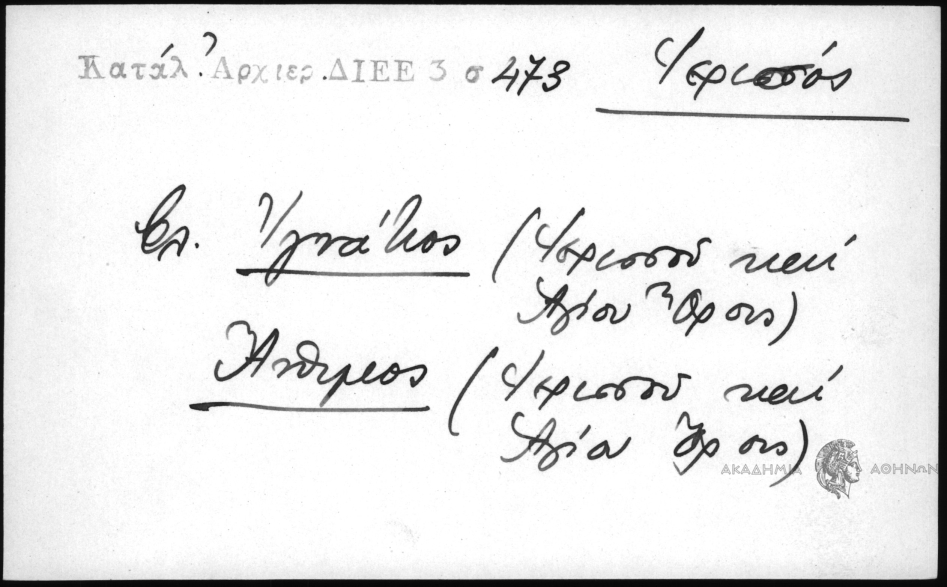 Κατάλ. Ἀρχιερ. ΔΙΕΕ 3 σ 473 Ἱερισσός
Ἐπ. Ἰγνάτιος (Ἱερισσοῦ καὶ
Ἁγίου Ὄρους)
Ἄνθιμος (Ἱερισσοῦ καὶ
Ἁγίου Ὄρους)
ΑΚΑΔΗΜΙΑ ΑΘΗΝΩΝ